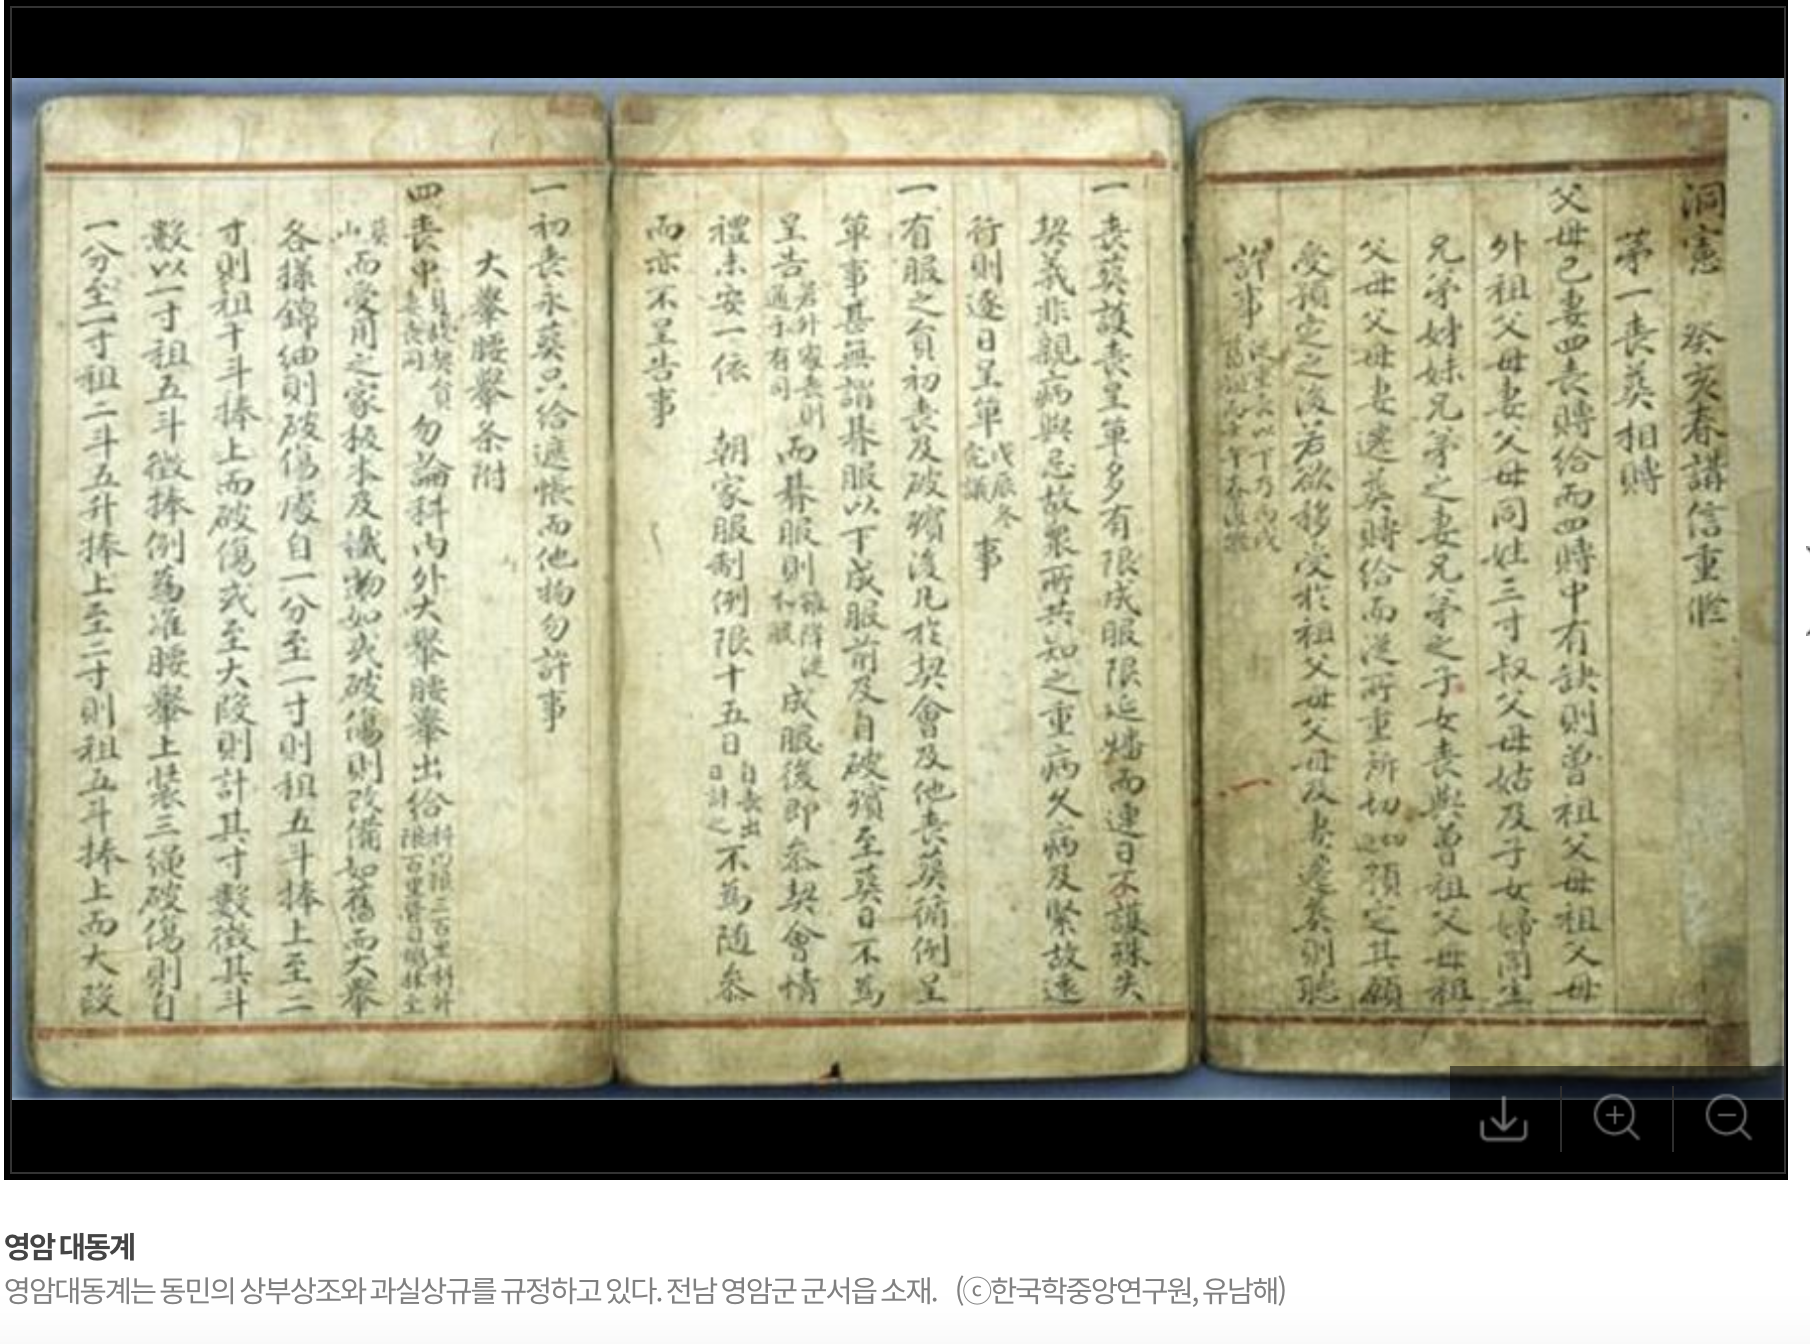 洞憲 癸亥春講信重修
第一喪葬相賻
父母己妻四喪賻給而四時中有缺則曾祖父母祖父母
外祖父母妻父母同姓三寸叔父母姑及子女婦同生
兄弟姊妹兄弟之妻兄弟之子女喪與曾祖父母祖
父母父母妻遷葬賻給而從所重所切 預定其願
受預定之後若欲移受於祖父母父母及妻遷葬則聽
許事
一喪葬護喪呈單多有限成服限 而連日不護殊失
契義非親病與忌故衆所共知之重病久病及緊故遠
行則逐日呈單 戊辰冬完議 事
一有服之員初喪及破殯後凡於契會及他喪葬循例呈
單事甚無謂朞服以下成服前及自破殯至葬日不爲
呈告 若外家喪則通于有司 而朞服則 成服後卽參契會情
禮未安一依 朝家服制例限十五日 自喪出日計之 不爲隨參
而亦不呈告事
一初喪永葬只給遮帳而他物勿許事
大轝腰轝条附
四喪中 勿論科內外大轝腰轝出給
而受用之家 及 物如或破傷則改備如舊而大轝
各樣錦紬則破傷處自一分至一寸則租五斗捧上至二
寸則租十斗捧上而破傷或至大段則計其寸數徵其斗
數以一寸租五斗徵捧例爲准腰轝上裝三繩破傷則自
一分至一寸租二斗五升捧上至二寸則租五斗捧上而大段
영암 대동계
영암대동계는 동민의 상부상조와 과실상규를 규정하고 있다. 전남 영암군 군서읍 소재. (ⓒ한국학중앙연구원, 유남해)